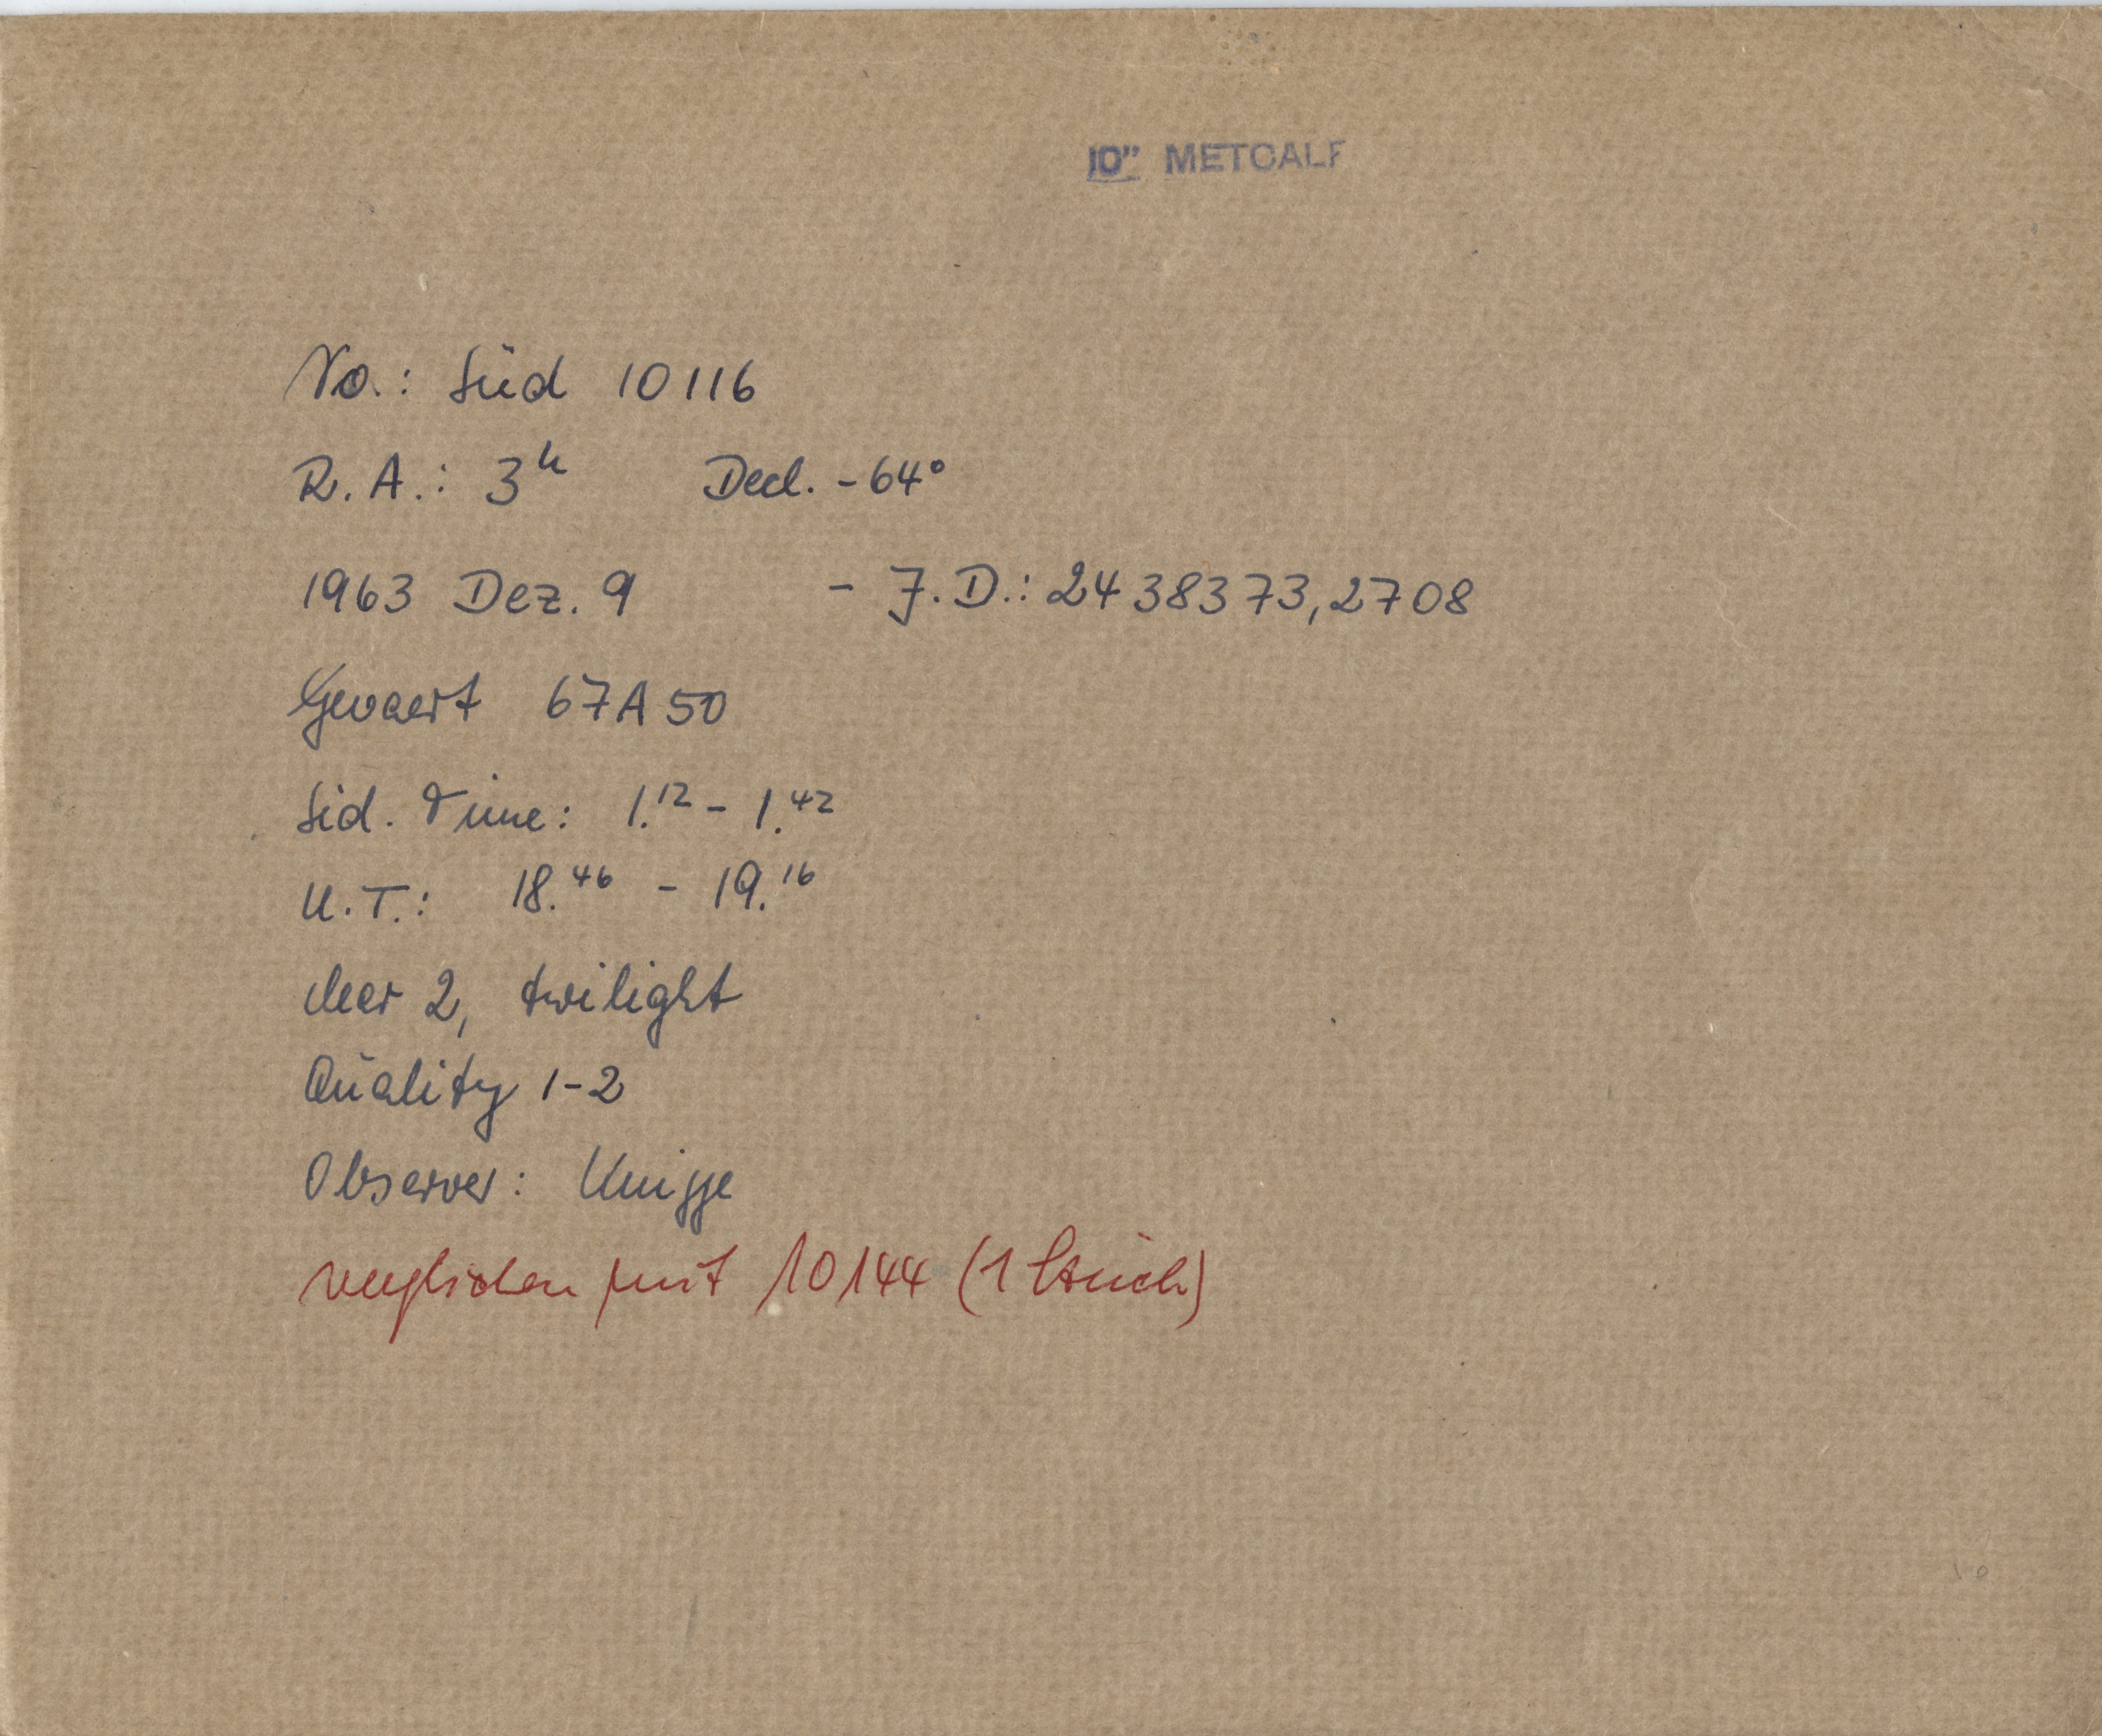 10" METCALF
No.: Süd 10116
R.A.: 3ʰ Decl. -64°
1963 Dez. 9 - J.D.: 2438373,2708
Gevaert 67A50
Sid. Time: 1.¹² - 1.⁴²
U.T.: 18.⁴⁶ - 19.¹⁶
clear 2, twilight
Quality 1-2
Observer: Knigge
verglichen mit 10144 (1 Stück)